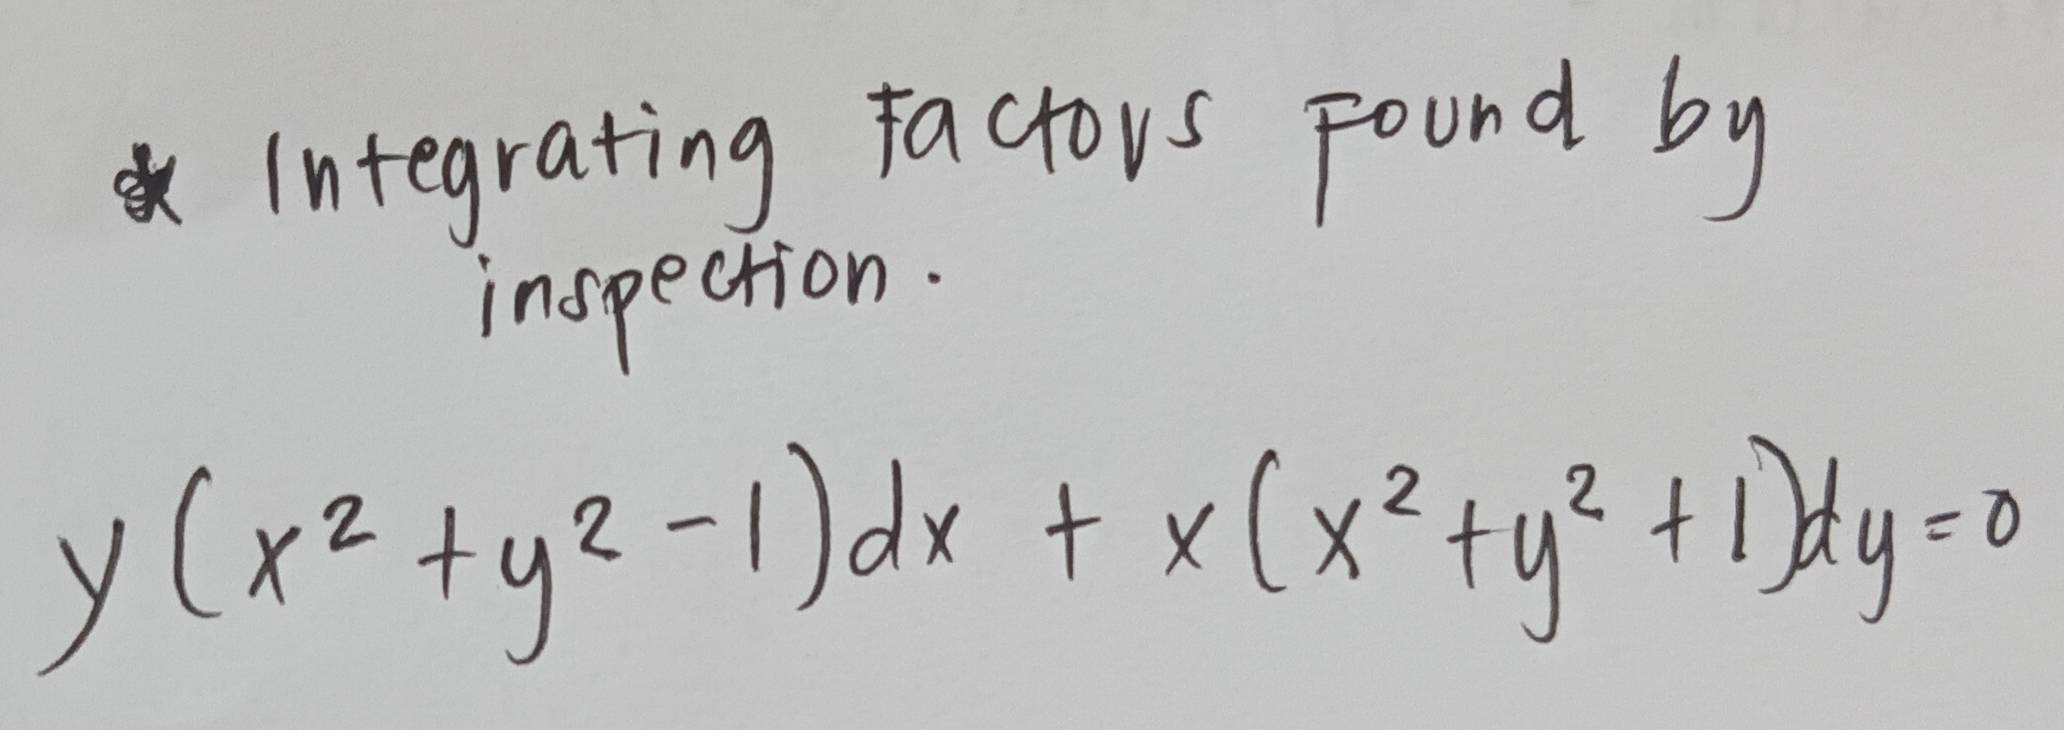 * Integrating Factors Found by
inspection.
y(x² + y² - 1)dx + x(x² + y² + 1)dy = 0